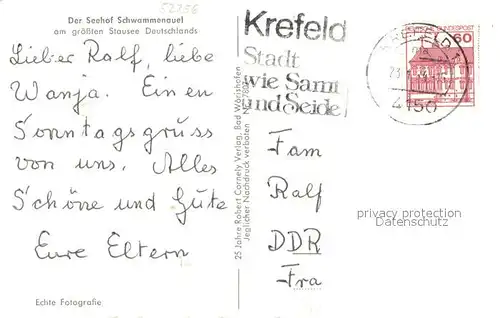 52756
Der Seehof Schwammenauel
am größten Stausee Deutschlands
Lieber Ralf, liebe
Wanja. Einen
Sonntagsgruss
von uns. Alles
Schöne und Gute
Eure Eltern
Echte Fotografie
25 Jahre Robert Cornely Verlag, Bad Wörishofen
Jeglicher Nachdruck verboten
Krefeld
Stadt
wie Samt
und Seide
KREFELD 1
4150
60
Fam
Ralf
DDR
Fra
privacy protection
Datenschutz